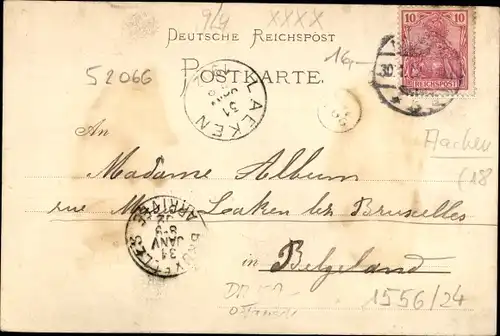 9/9 XXXX
DEUTSCHE REICHSPOST
16,-
10 10
REICHSPOST
30.
52066
POSTKARTE.
LAEKEN
31
JANV
Aachen
(18
An
Madame Album
rue Laeken lez Bruxelles
BRUXELLES
ARRIVÉE
31
JANV
in Belgeland
1556/24